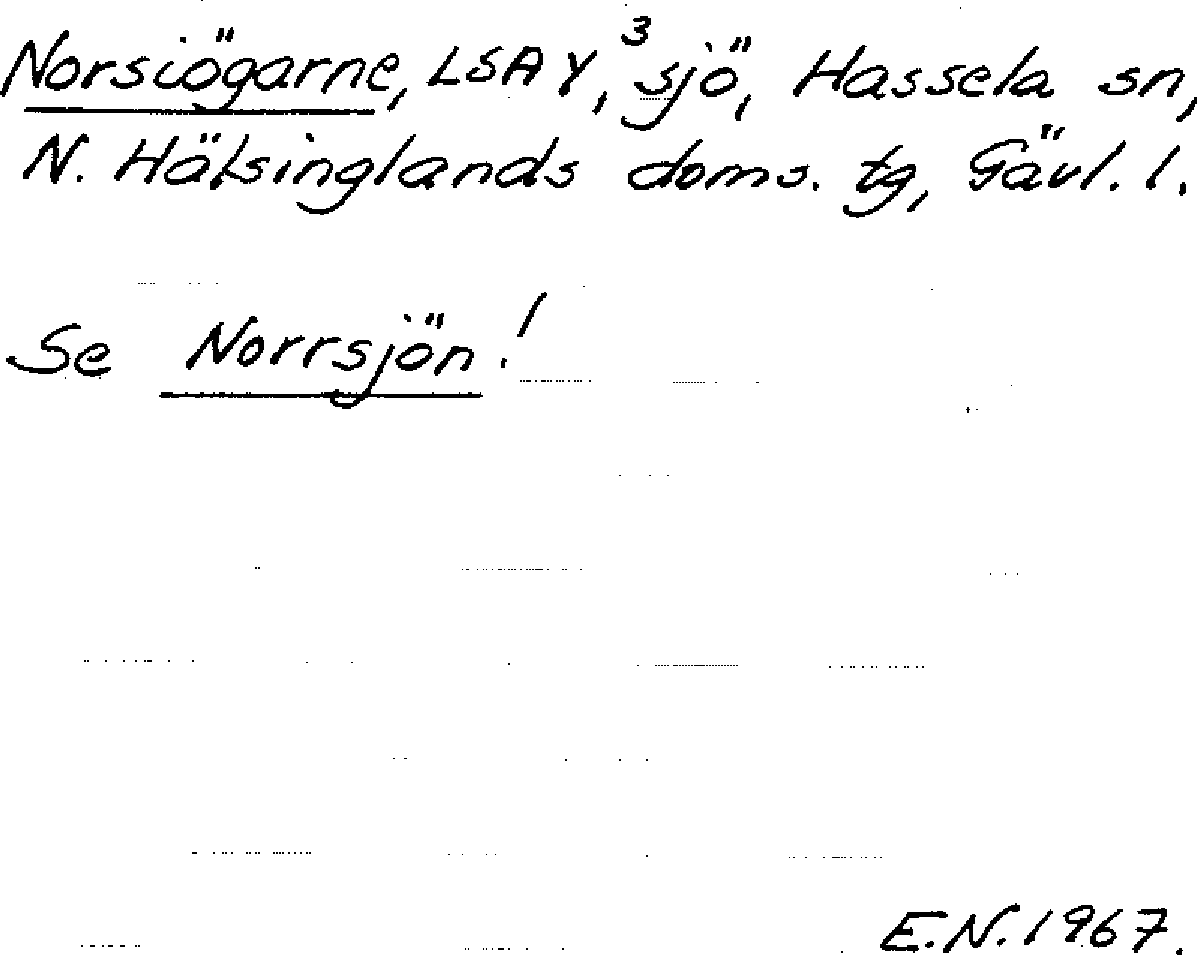 Norsiögarne, LSA Y, ³sjö, Hassela sn,
N. Hälsinglands doms. tg, Gävl. l.
Se Norrsjön!
E.N. 1967.